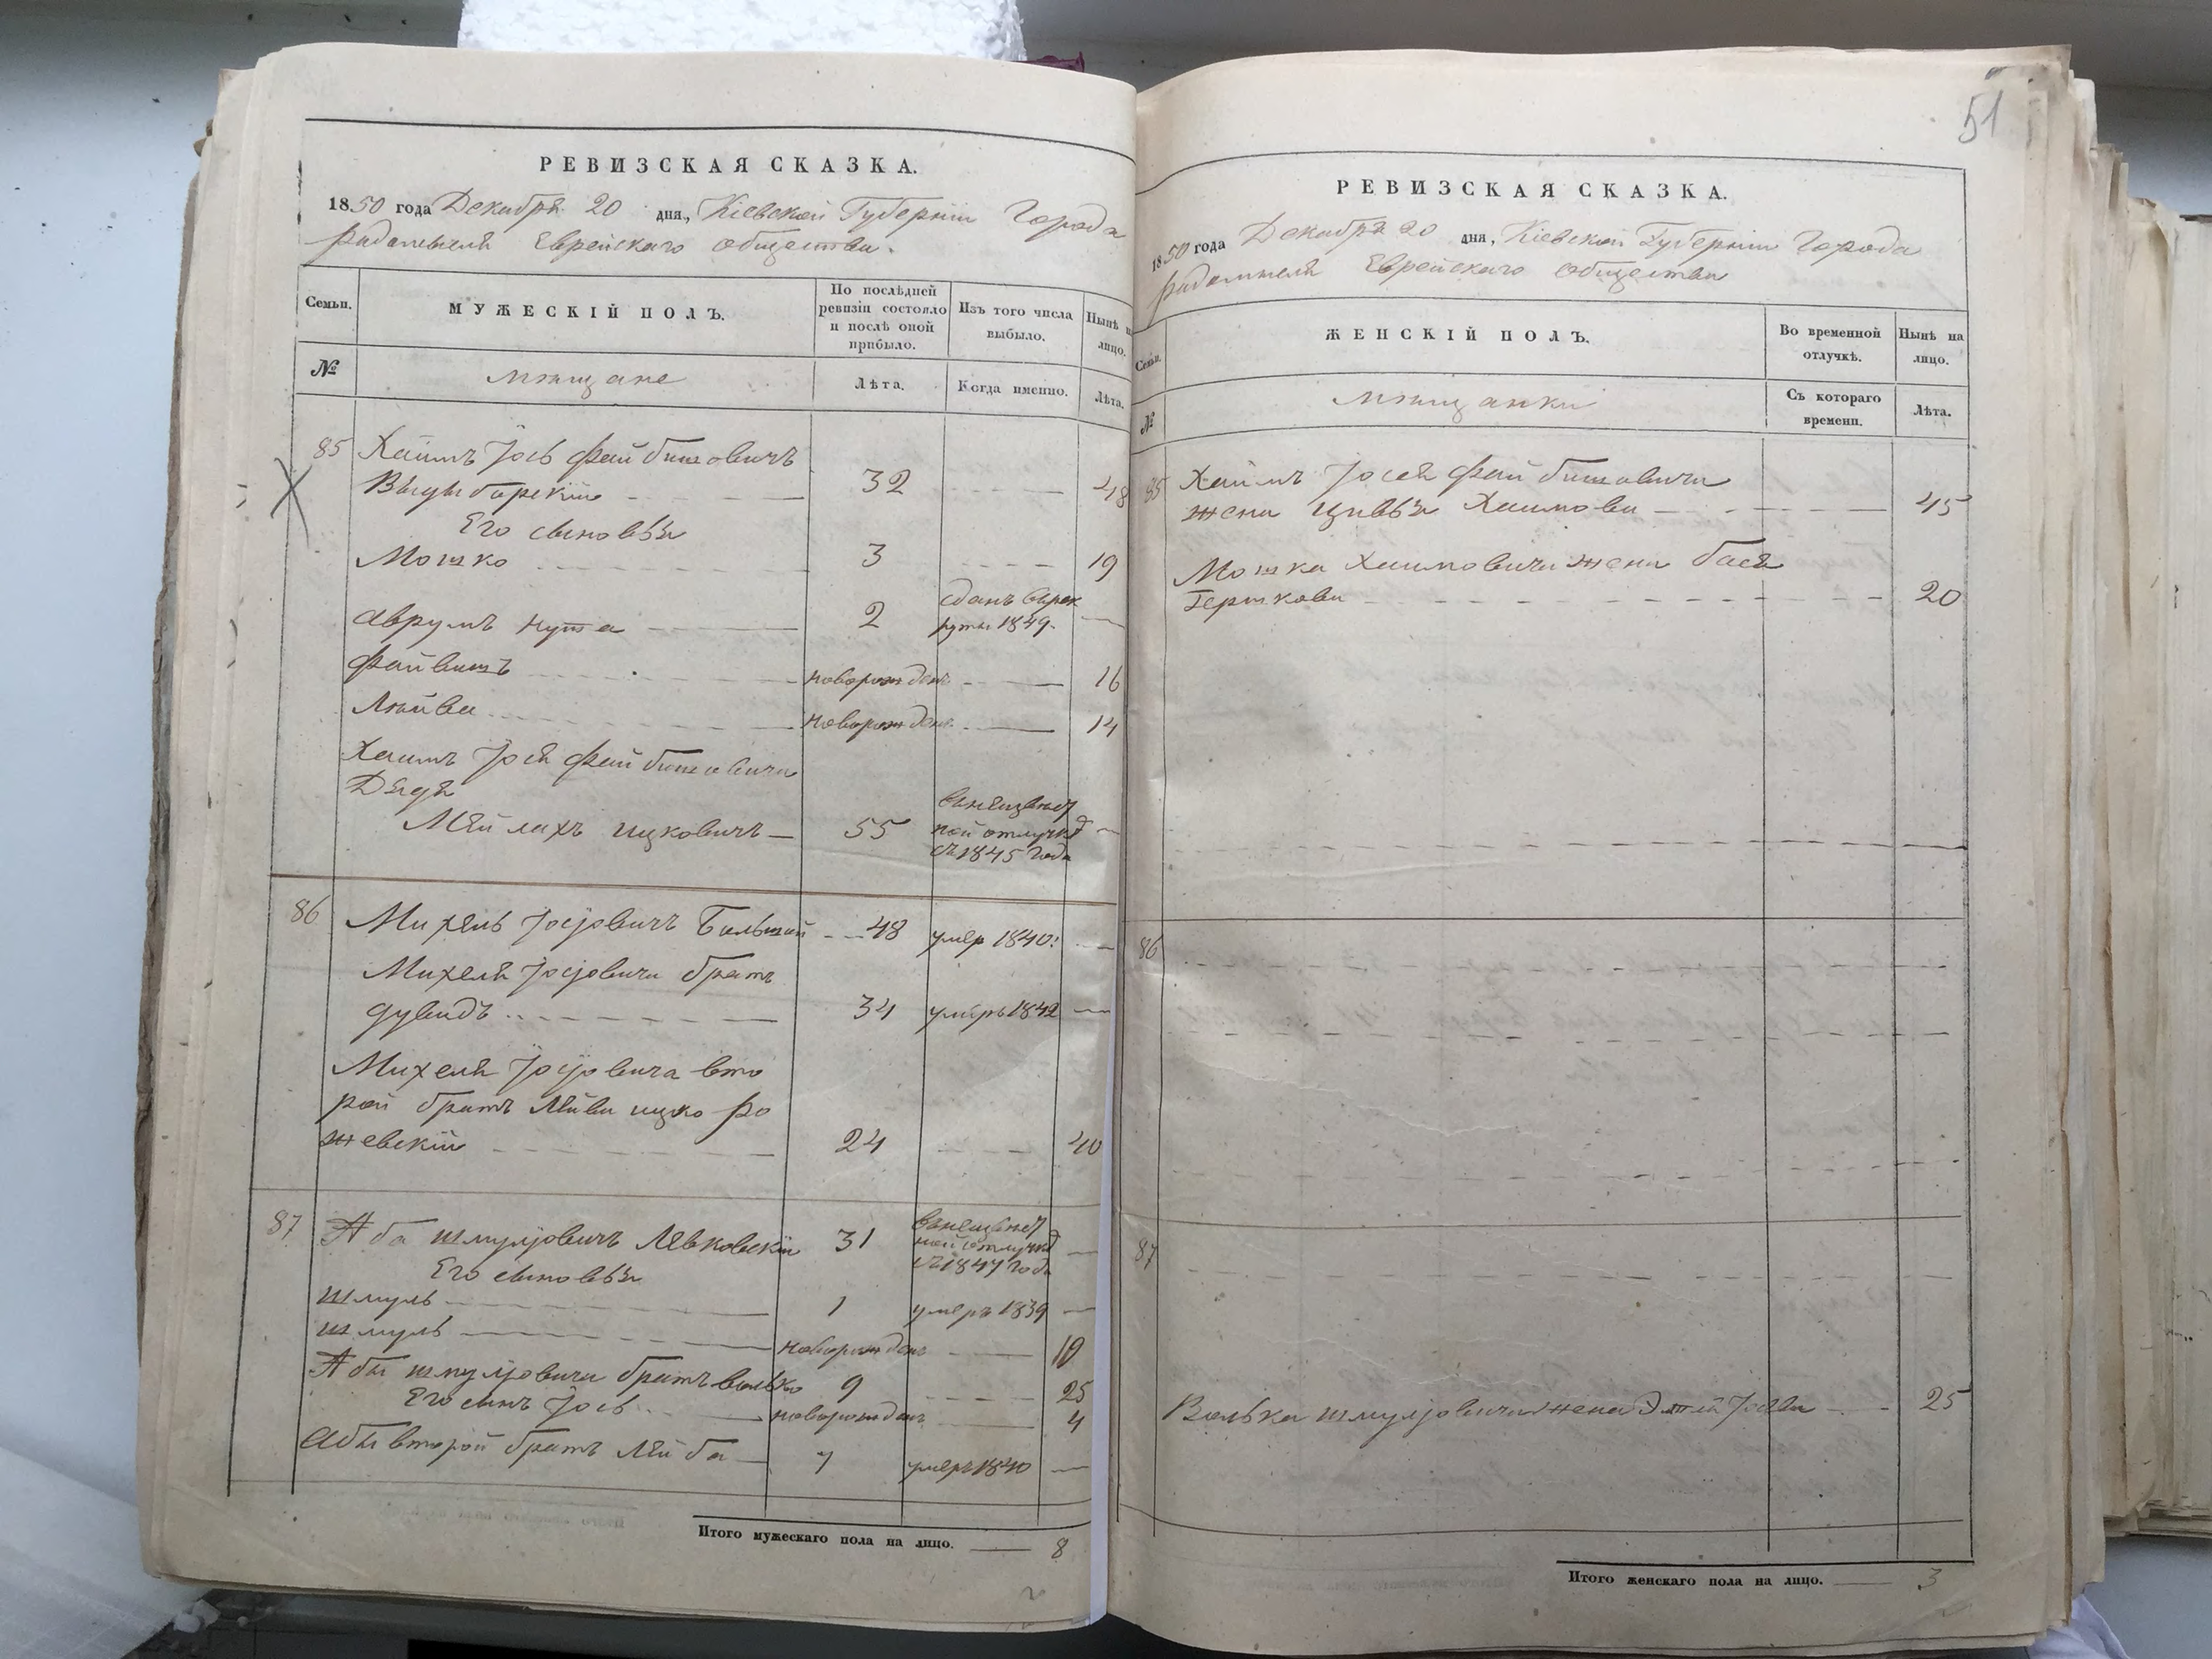 РЕВИЗСКАЯ СКАЗКА.
1850 года Декабря 20 дня, Кіевской Губерніи Города
Радомысля Еврейскаго общества.
Семьи.
МУЖЕСКІЙ ПОЛЪ.
По послѣдней ревизіи состояло и послѣ оной прибыло.
Изъ того числа выбыло.
Нынѣ на лицо.
№
мѣщане
Лѣта.
Когда именно.
Лѣта.
85 Хаимъ Іось Файбишовичъ
32 48
Его сыновья
Мошко 3 19
Аврумъ Нута 2 сданъ в рек
руты 1849.
Файвишъ новорожден 16
Лейва новорожден 14
Хаимъ Іося Файбишовича
Дядя
Мейлахъ Ицковичъ 55
ной отлучкѣ
съ 1845 года
86 Михель Іосіовичъ 48 умер 1840:
Михеля Іосіовича братъ
Дувидъ 34 умеръ 1842
Михеля Іосіовича вто
рой братъ Лейва Ицко Ро
жевскій 24 40
87 Аба Шмуліовичъ Левковскій 31
ной отлучкѣ
съ 1847 года
Его сыновья
Шмуль 1 умеръ 1839
Шмуль новорожден 10
Абы Шмуліовича братъ Волько 9 25
Его сынъ Іось новорожден 4
Абы второй братъ Лейба 7 умеръ 1840
Итого мужескаго пола на лицо. 8
51
РЕВИЗСКАЯ СКАЗКА.
1850 года Декабря 20 дня, Кіевской Губерніи Города
Радомысля Еврейскаго общества
Семьи.
ЖЕНСКІЙ ПОЛЪ.
Во временной отлучкѣ.
Нынѣ на лицо.
№
мѣщанки
Съ котораго времени.
Лѣта.
85 Хаимъ Іося Файбишовича
жена Цивья Хаимова 45
Мошка Хаимовича жена Бася
Гершкова 20
86
87
Волька Шмуліовича жена 25
Итого женскаго пола на лицо. 3